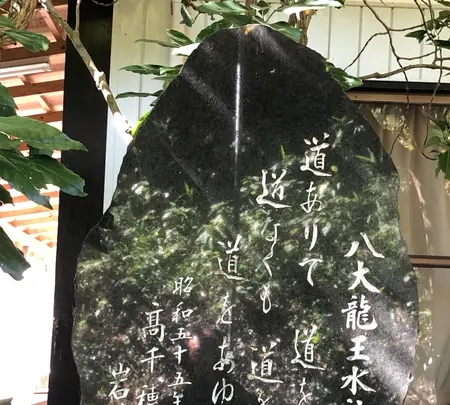 八大龍王水神
道ありて 道を
道なくも 道を
道をあゆ
昭和五十五年
高千穂
岩